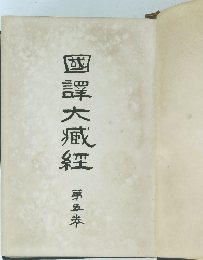 國譯大藏經
第五卷